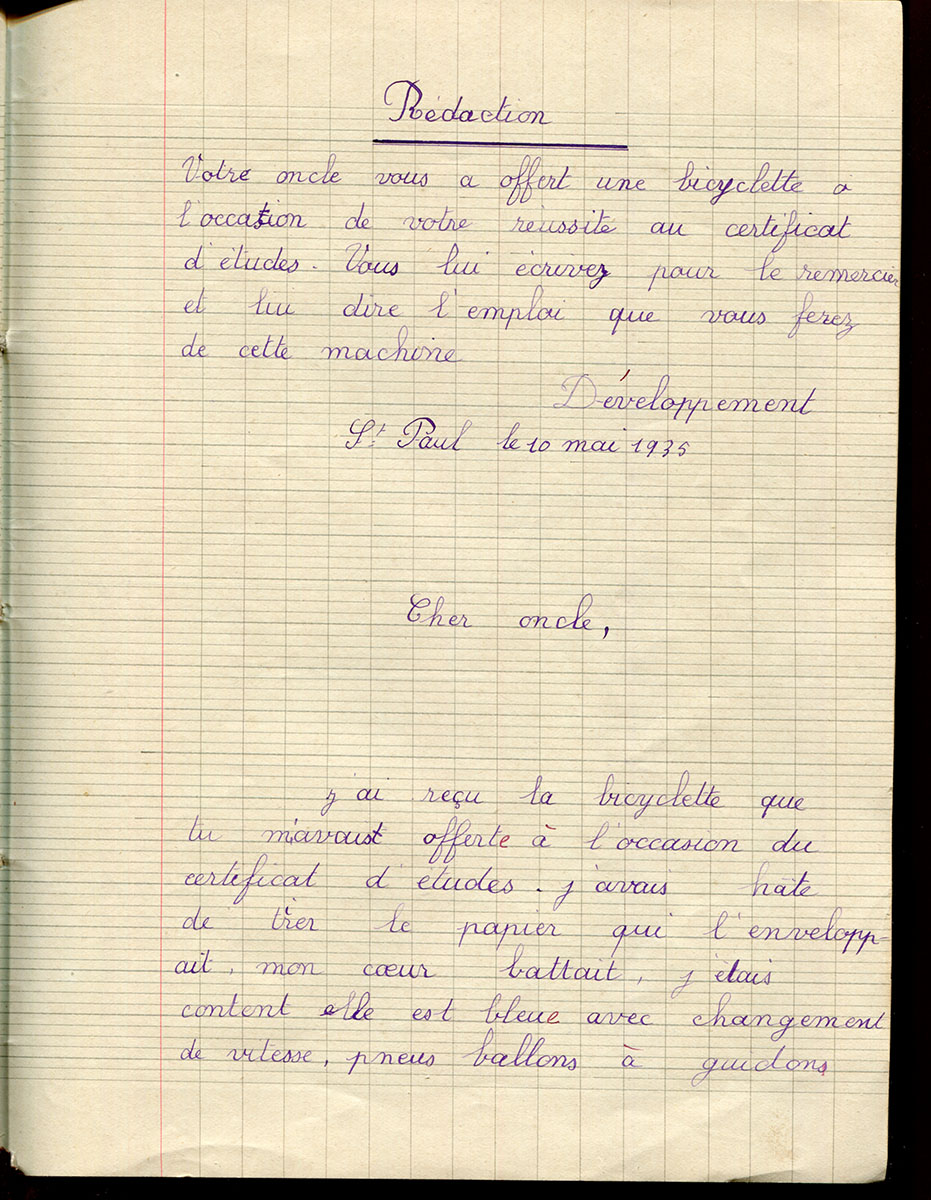 Rédaction
Votre oncle vous a offert une bicyclette à
l'occasion de votre réussite au certificat
d'études. Vous lui écrivez pour le remercier
et lui dire l'emploi que vous ferez
de cette machine
Développement
St Paul le 10 mai 1935
Cher oncle,
j'ai reçu la bicyclette que
tu m'avaist offerte à l'occasion du
certificat d'études. j'avais hâte
de tier le papier qui l'envelopp-
ait, mon cœur battait, j'étais
content elle est bleue avec changement
de vitesse, pneus ballons à guidons